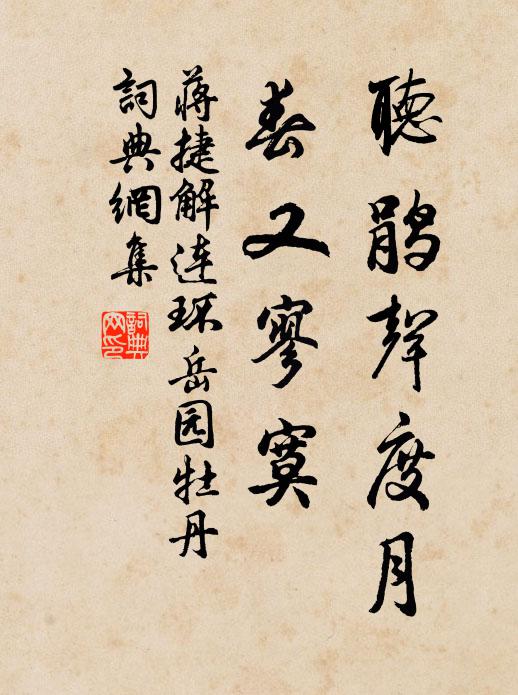 聽鹃聲度月
春又寥寞
蒋捷解连环岳园牡丹
詞典網集
詞典网印